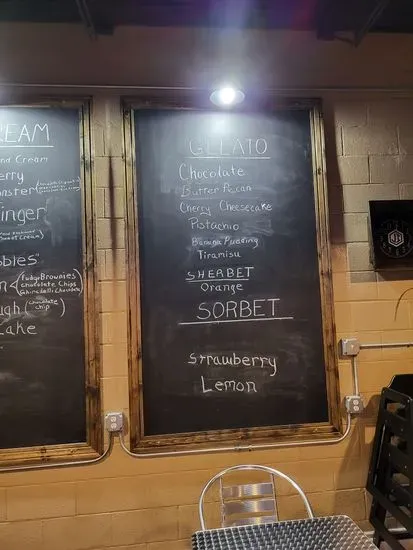 EAM
and Cream
erry
onster
inger
Sweet Cream
bbles"
fudge Brownies
Chocolate Chips
Ghirardelli Chocolate
ugh (chocolate chip)
Cake
GELATO
Chocolate
Butter Pecan
Cherry Cheesecake
Pistachio
Banana Pudding
Tiramisu
SHERBET
Orange
SORBET
Strawberry
Lemon